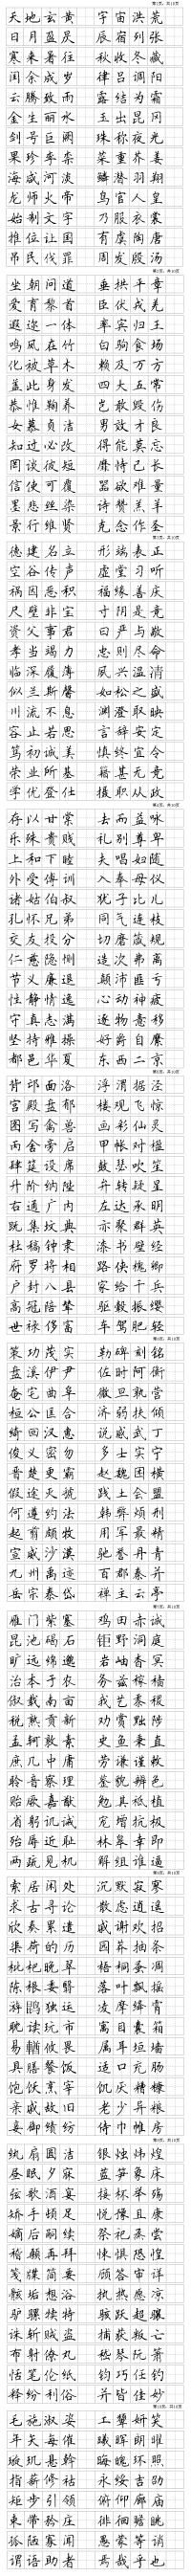 第1页，共10页
天地玄黄 宇宙洪荒
日月盈昃 辰宿列张
寒来暑往 秋收冬藏
闰余成岁 律吕调阳
云腾致雨 露结为霜
金生丽水 玉出昆冈
剑号巨阙 珠称夜光
果珍李柰 菜重芥姜
海咸河淡 鳞潜羽翔
龙师火帝 鸟官人皇
始制文字 乃服衣裳
推位让国 有虞陶唐
吊民伐罪 周发殷汤
第2页，共10页
坐朝问道 垂拱平章
爱育黎首 臣伏戎羌
遐迩一体 率宾归王
鸣凤在竹 白驹食场
化被草木 赖及万方
盖此身发 四大五常
恭惟鞠养 岂敢毁伤
女慕贞洁 男效才良
知过必改 得能莫忘
罔谈彼短 靡恃己长
信使可覆 器欲难量
墨悲丝染 诗赞羔羊
景行维贤 克念作圣
第3页，共10页
德建名立 形端表正
空谷传声 虚堂习听
祸因恶积 福缘善庆
尺璧非宝 寸阴是竞
资父事君 曰严与敬
孝当竭力 忠则尽命
临深履薄 夙兴温清
似兰斯馨 如松之盛
川流不息 渊澄取映
容止若思 言辞安定
笃初诚美 慎终宜令
荣业所基 籍甚无竟
学优登仕 摄职从政
第4页，共10页
存以甘棠 去而益咏
乐殊贵贱 礼别尊卑
上和下睦 夫唱妇随
外受傅训 入奉母仪
诸姑伯叔 犹子比儿
孔怀兄弟 同气连枝
交友投分 切磨箴规
仁慈隐恻 造次弗离
节义廉退 颠沛匪亏
性静情逸 心动神疲
守真志满 逐物意移
坚持雅操 好爵自縻
都邑华夏 东西二京
第5页，共10页
背邙面洛 浮渭据泾
宫殿盘郁 楼观飞惊
图写禽兽 画彩仙灵
丙舍旁启 甲帐对楹
肆筵设席 鼓瑟吹笙
升阶纳陛 弁转疑星
右通广内 左达承明
既集坟典 亦聚群英
杜稿钟隶 漆书壁经
府罗将相 路侠槐卿
户封八县 家给千兵
高冠陪辇 驱毂振缨
世禄侈富 车驾肥轻
第6页，共10页
策功茂实 勒碑刻铭
盘溪伊尹 佐时阿衡
奄宅曲阜 微旦孰营
桓公匡合 济弱扶倾
绮回汉惠 说感武丁
俊义密勿 多士实宁
晋楚更霸 赵魏困横
假途灭虢 践土会盟
何遵约法 韩弊烦刑
起翦颇牧 用军最精
宣威沙漠 驰誉丹青
九州禹迹 百郡秦并
岳宗泰岱 禅主云亭
第7页，共10页
雁门紫塞 鸡田赤诚
昆池碣石 钜野洞庭
旷远绵邈 岩岫杳冥
治本于农 务兹稼穑
俶载南亩 我艺黍稷
税熟贡新 劝赏黜陟
孟轲敦素 史鱼秉直
庶几中庸 劳谦谨敕
聆音察理 鉴貌辨色
贻厥嘉猷 勉其祗植
省躬讥诫 宠增抗极
殆辱近耻 林皋幸即
两疏见机 解组谁逼
第8页，共10页
索居闲处 沉默寂寥
求古寻论 散虑逍遥
欣奏累遣 戚谢欢招
渠荷的历 园莽抽条
枇杷晚翠 梧桐蚤凋
陈根委翳 落叶飘摇
游鹍独运 凌摩绛霄
耽读玩市 寓目囊箱
易輶攸畏 属耳垣墙
具膳餐饭 适口充肠
饱饫烹宰 饥厌糟糠
亲戚故旧 老少异粮
妾御绩纺 侍巾帷房
第9页，共10页
纨扇圆洁 银烛炜煌
昼眠夕寐 蓝笋象床
弦歌酒宴 接杯举殇
矫手顿足 悦豫且康
嫡后嗣续 祭祀烝尝
稽颡再拜 悚惧恐惶
笺牒简要 顾答审详
骸垢想浴 执热愿凉
驴骡犊特 骇跃超骧
诛斩贼盗 捕获叛亡
布射僚丸 嵇琴阮箫
恬笔伦纸 钧巧任钓
释纷利俗 并皆佳妙
第10页，共10页
毛施淑姿 工颦妍笑
年矢每催 曦晖朗曜
璇玑悬斡 晦魄环照
指薪修祜 永绥吉劭
矩步引领 俯仰廊庙
束带矜庄 徘徊瞻眺
孤陋寡闻 愚蒙等诮
谓语助者 焉哉乎也